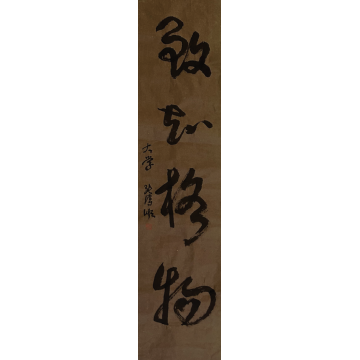 致知格物
大学